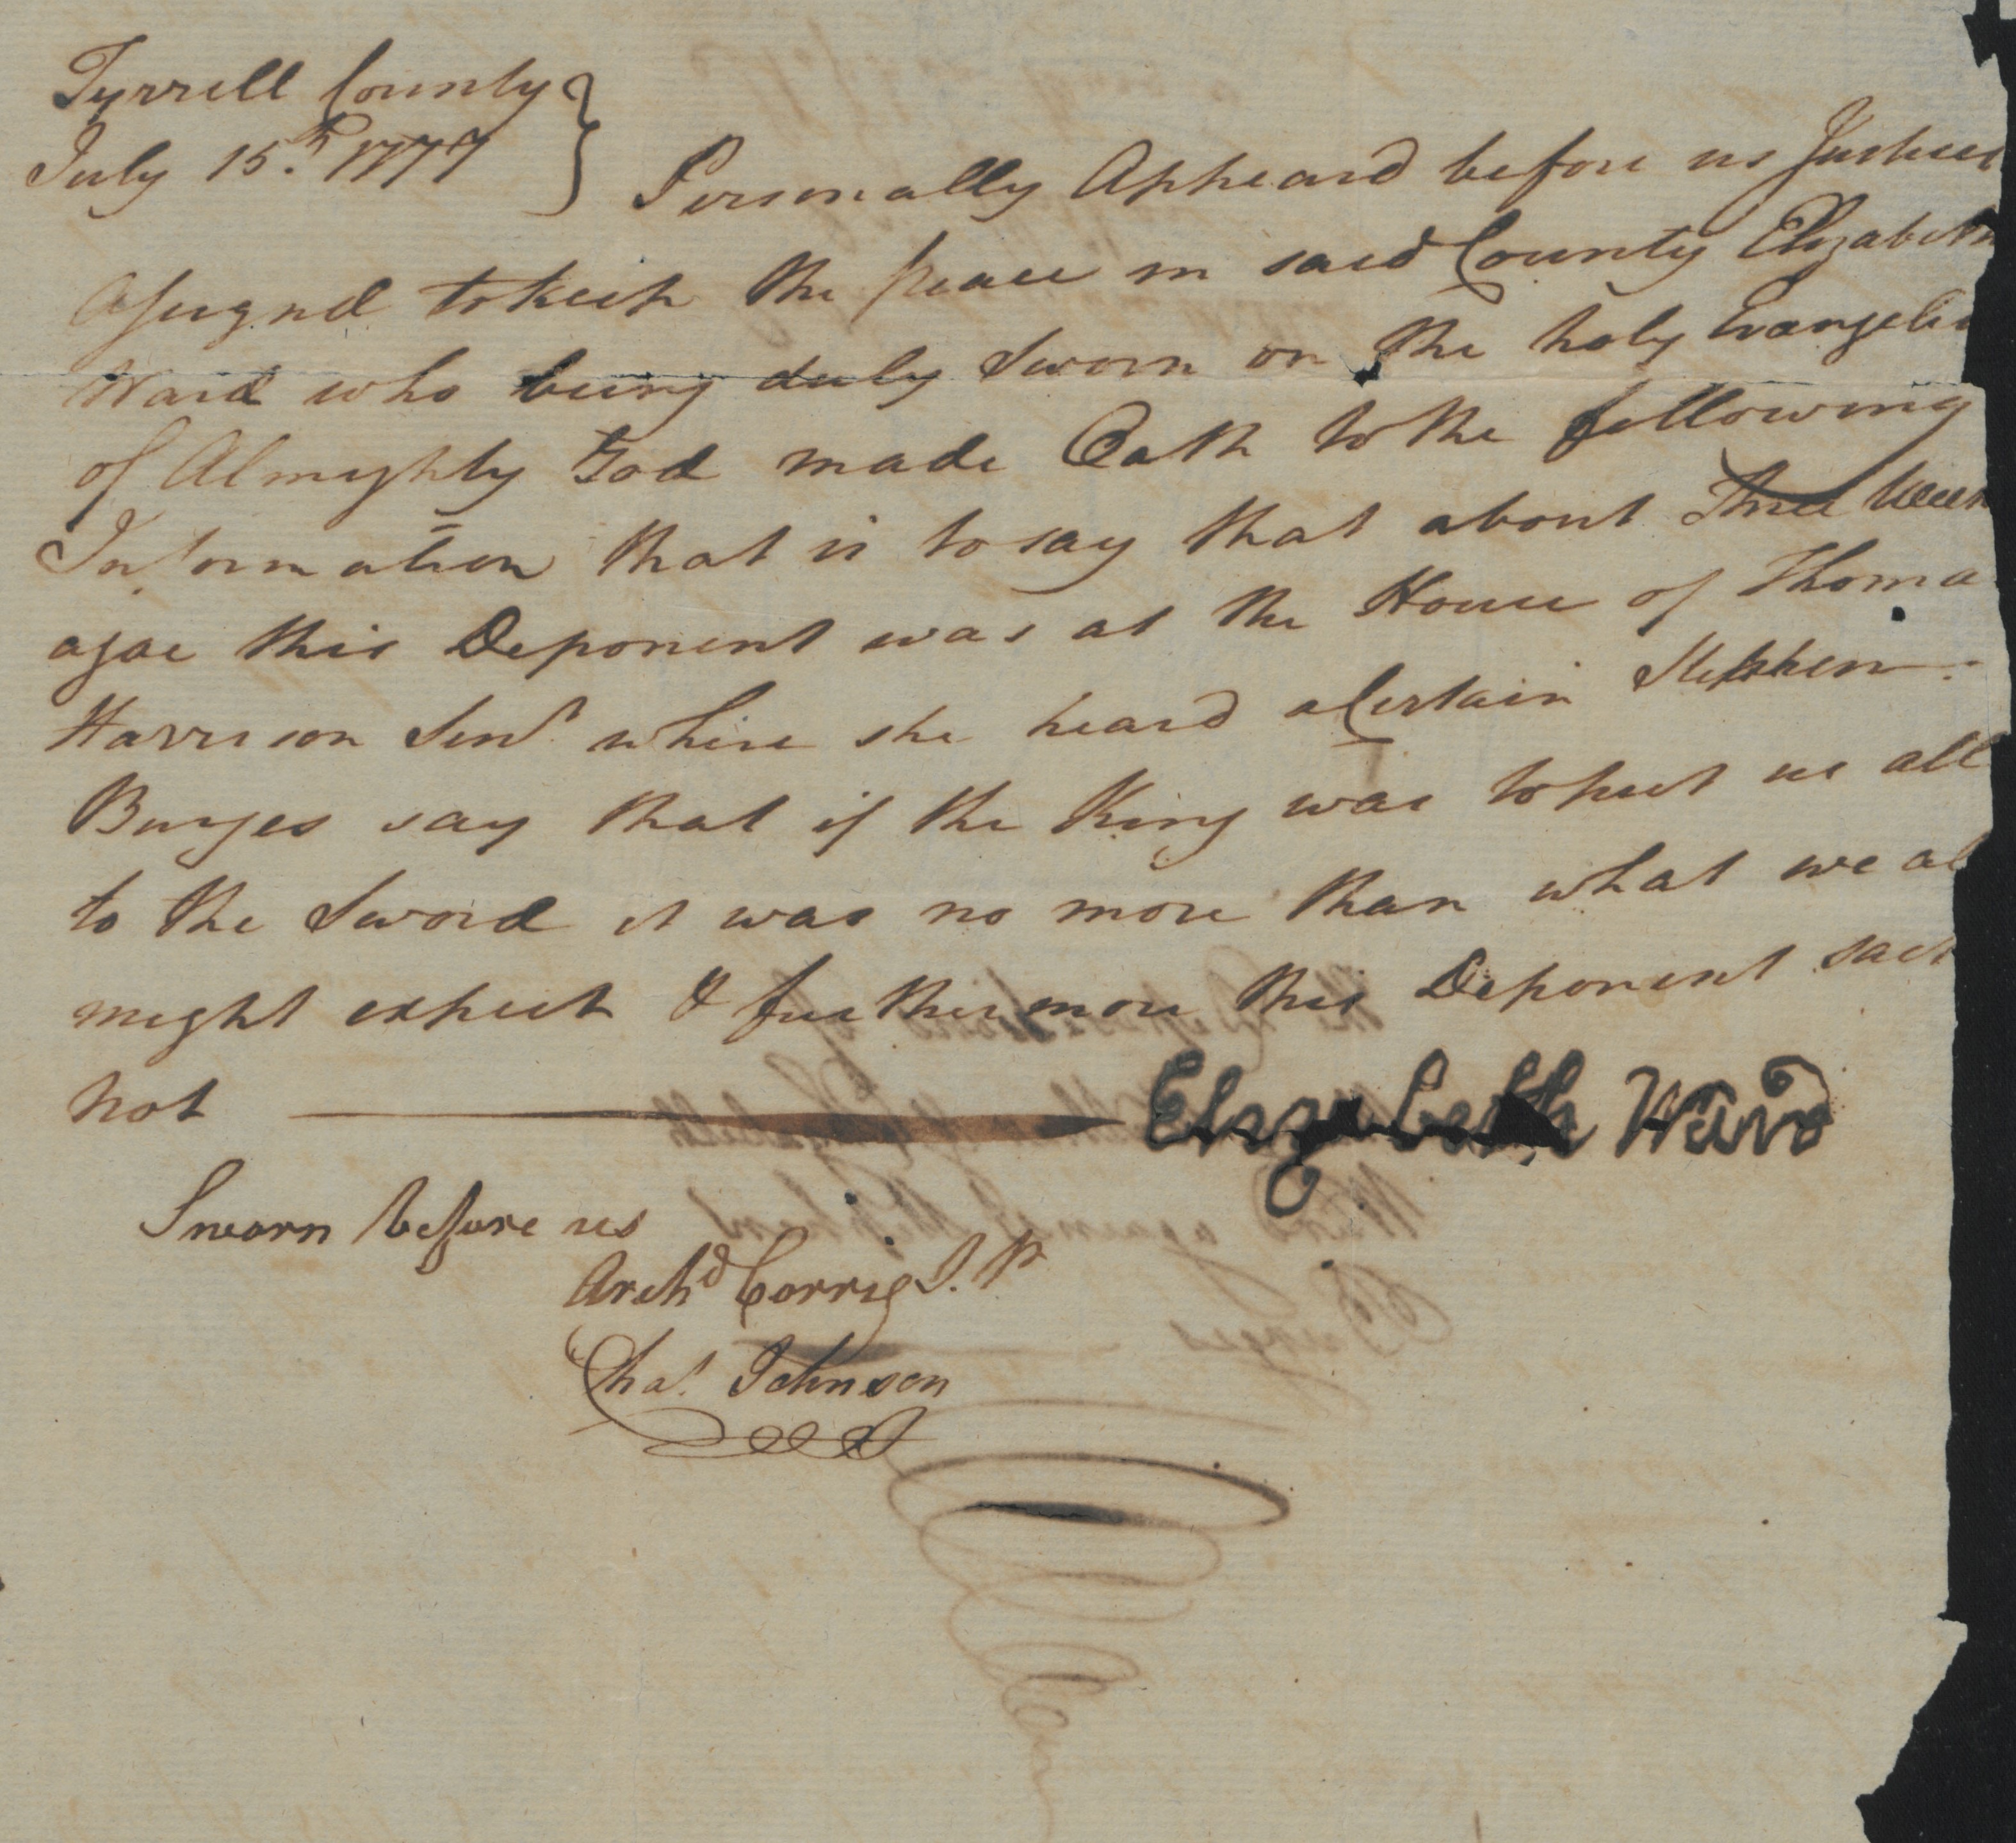 Tyrrell County
July 15.th 1777
Personally Appeard before us Justices
Assignd to keep the peace in said County Elizabeth
Ward who being duly Sworn on the holy Evangelis
of Almighty God made Oath to the following
Information that is to say that about Three Week
agoe this Deponent was at the House of Thoma
Harrison Senr where she heard a Certain Stephen
Burges say that if the King was to put us all
to the Sword it was no more than what we al
might expect & furthermore this Deponent sait
not Elizabeth Ward
Sworn before us
Archd Corrie J. P
Chas. Johnson
The Deposition of
Elizabeth
Ward against Stephen
Burges